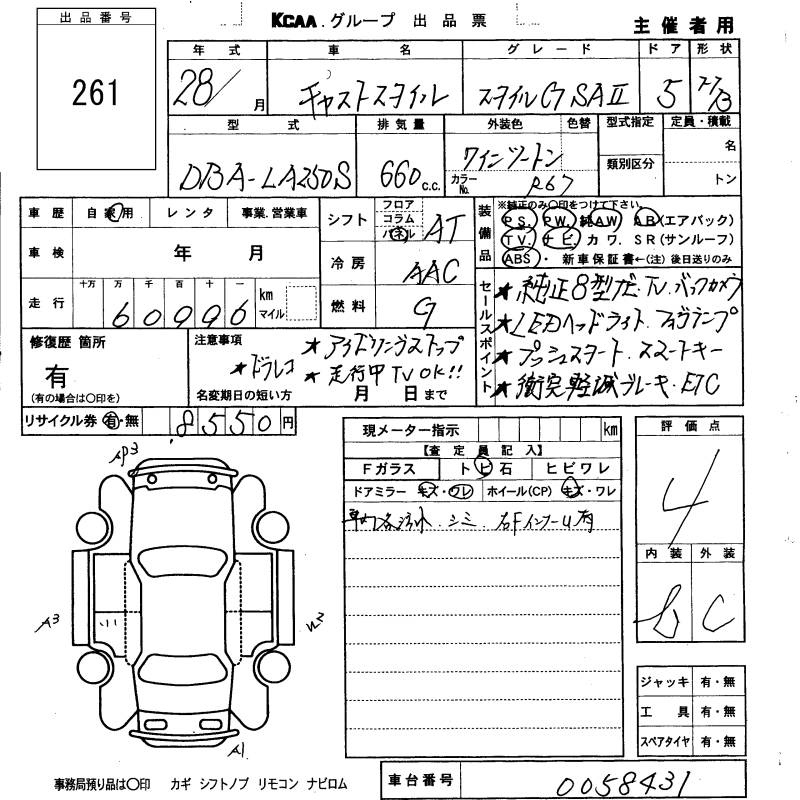 出品番号
261
KCAA.グループ 出品票
主催者用
年式 車名 グレード ドア 形状
28/ 月 キャストスタイル スタイルG SAⅡ 5
型式 排気量 外装色 色替 型式指定 定員・積載
DBA-LA250S 660 c.c. ワインツートン カラーNo. R67 類別区分 名 トン
車歴 自家用 レンタ 事業.営業車
車検 年 月
走行 十万 万 千 百 十 一
60996 km マイル
シフト フロア コラム パネル AT
冷房 AAC
燃料 G
装備品 ※純正のみ〇印をつけて下さい。
PS. PW. 純AW AB(エアバック)
TV. ナビ. カワ. SR(サンルーフ)
ABS・ 新車保証書←(注)後日送りのみ
セールスポイント
★純正8型ナビ.TV.バックカメラ
★LEDヘッドライト.フォグランプ
★プッシュスタート.スマートキー
★衝突軽減ブレーキ.ETC
修復歴 箇所
有
(有の場合は〇印を)
注意事項
★アイドリングストップ
★ドラレコ ★走行中TV OK!!
名変期日の短い方 月 日まで
リサイクル券 有・無 8550円
現メーター指示 km
【査定員記入】
Fガラス トビ石 ヒビワレ
ドアミラー キズ・ワレ ホイール(CP) キズ・ワレ
車内汚れ.シミ.右Fインナー凹有
評価点
4
内装 外装
b C
AP3
A3
W2
A1
ジャッキ 有・無
工具 有・無
スペアタイヤ 有・無
事務局預り品は〇印 カギ シフトノブ リモコン ナビロム
車台番号 0058431